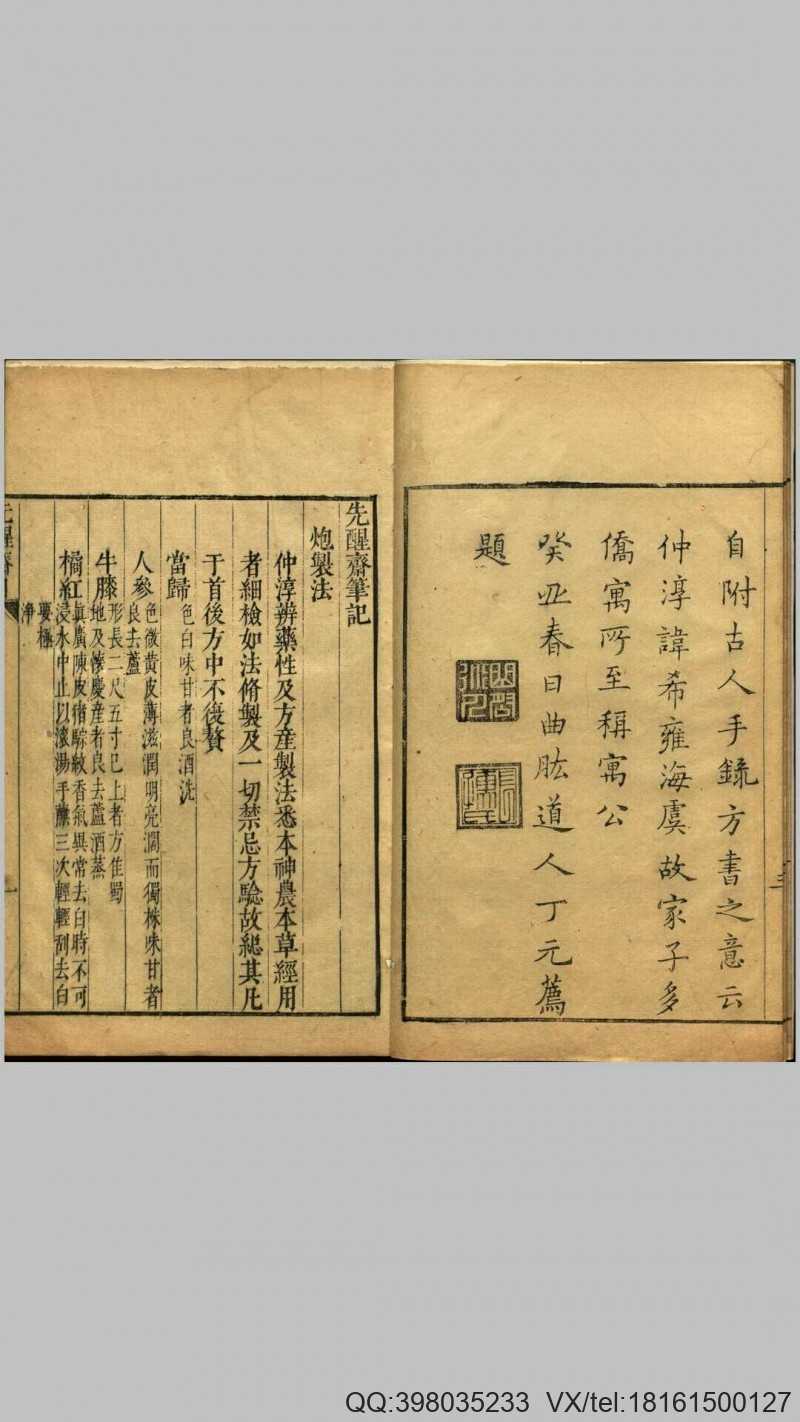 自附古人手錄方書之意云
仲淳諱希雍海虞故家子多
僑寓所至稱寓公
癸丑春日曲肱道人丁元薦
題
三
先醒齋筆記
炮製法
仲淳辨藥性及方產製法悉本神農本草經用
者細檢如法脩製及一切禁忌方驗故總其凡
于首後方中不復贅
當歸
色白味甘者良酒洗
人參
色微黃皮薄滋潤明亮濶而獨株味甘者
良去蘆
牛膝
形長二尺五寸已上者方佳蜀
地及懷慶產者良去蘆酒蒸
橘紅
真廣陳皮猪鬃紋香氣異常去白時不可
浸水中止以滾湯手蘸三次輕輕刮去白
要極
淨
一
QQ:398035233 VX/tel:18161500127